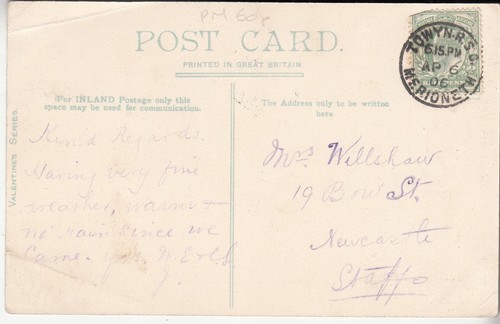 PM 60p
POST CARD.
PRINTED IN GREAT BRITAIN
TOWYN. R.S.O.
6.15.PM
AP 6
06
MERIONETH
For INLAND Postage only this
space may be used for communication.
The Address only to be written
here
VALENTINE'S SERIES.
Kind Regards.
Having very fine
weather, warm &
no rain since we
came. yrs
J.
Mrs Willshaw
19 Bow St.
Newcastle
Staffs